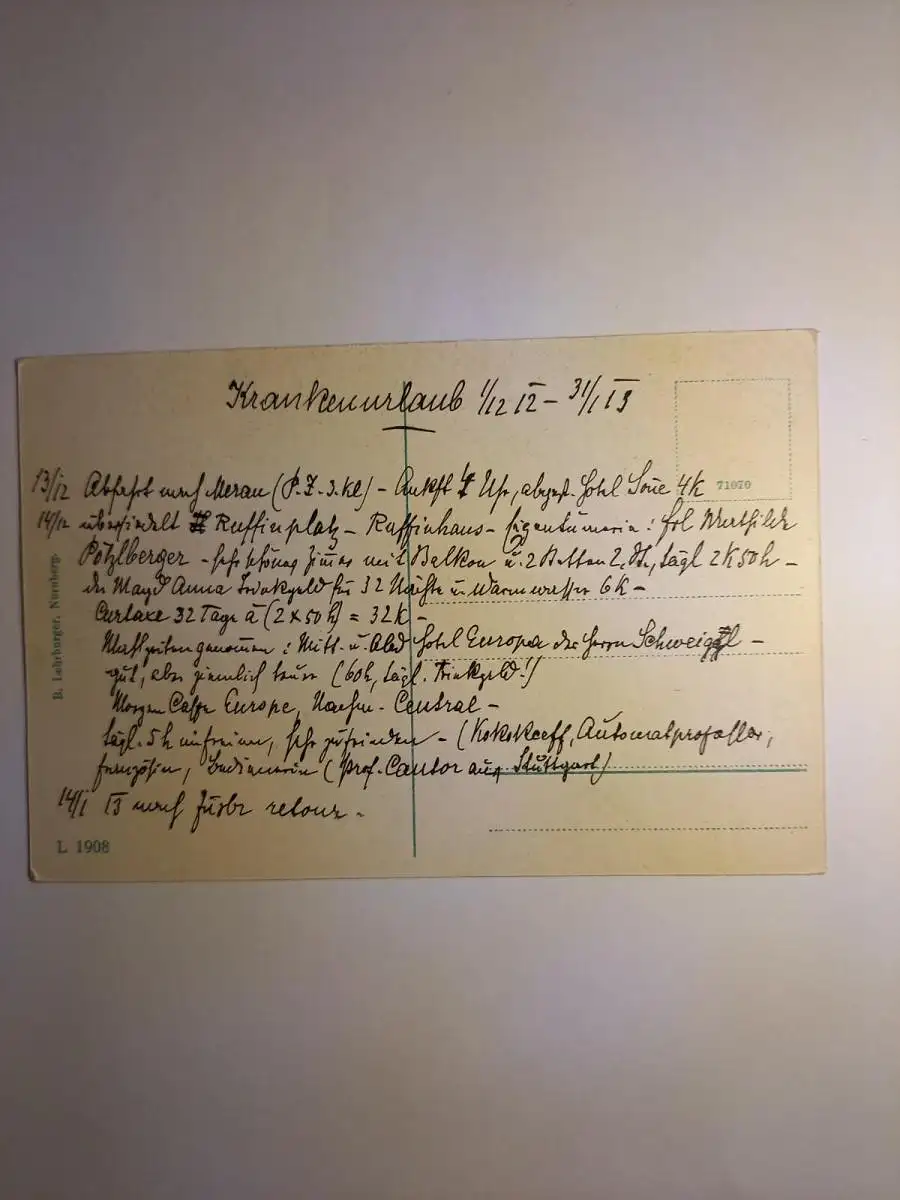 Krankenurlaub 1/12 12 – 31/1 13
13/12 Abfahrt nach Meran (P. Z. 3. Kl) – Ankft Uhr, abgest. Hotel 4 K
71070
14/12 übersiedelt Ruffinplatz – Ruffinhaus – Eigentümerin: Frl Mathilde
Pötzlberger – sehr schönes Zimmer mit Balkon u. 2 Betten 2. St., tägl 2 K 50 h –
der Magd Anna Trinkgeld für 32 Nächte u Warmwasser 6 K –
Curtaxe 32 Tage à (2 x 50 h) = 32 K –
Mahlzeiten genommen: Mitt.- u. Abd Hotel Europa des Herrn
gut, aber ziemlich teuer (60 h, tägl. Trinkgeld!)
Morgen Caffe Europe, Nachm. Central –
tägl. 5 h im freien, sehr zufrieden – (
(Prof. Cantor aus Stuttgart)
14/1 13 nach Insbr retour.
B. Lehrburger, Nürnberg.
L 1908